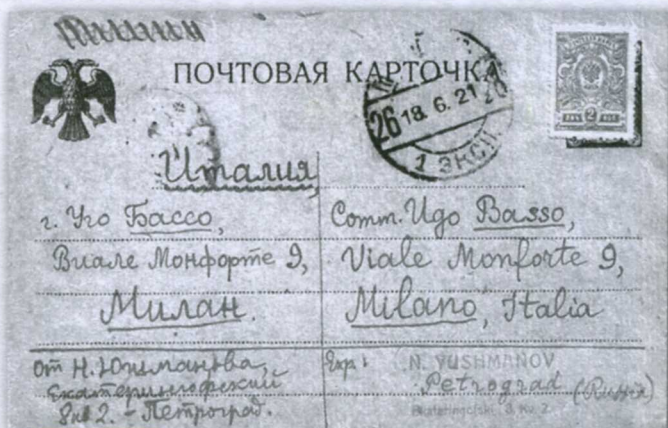 ПОЧТОВАЯ КАРТОЧКА
26 18 6. 21 20
1 ЭКСП.
2
Италия,
г. Уго Бассо,
Виале Монфорте 9,
Милан.
Comm. Ugo Basso,
Viale Monforte 9,
Milano, Italia
От Н. Юшманова,
Екатерингофский
8 кв 2. – Петроград.
Exp:
N. YUSHMANOV
Petrograd (Russia)
Ekateringofski, 8, kv. 2.